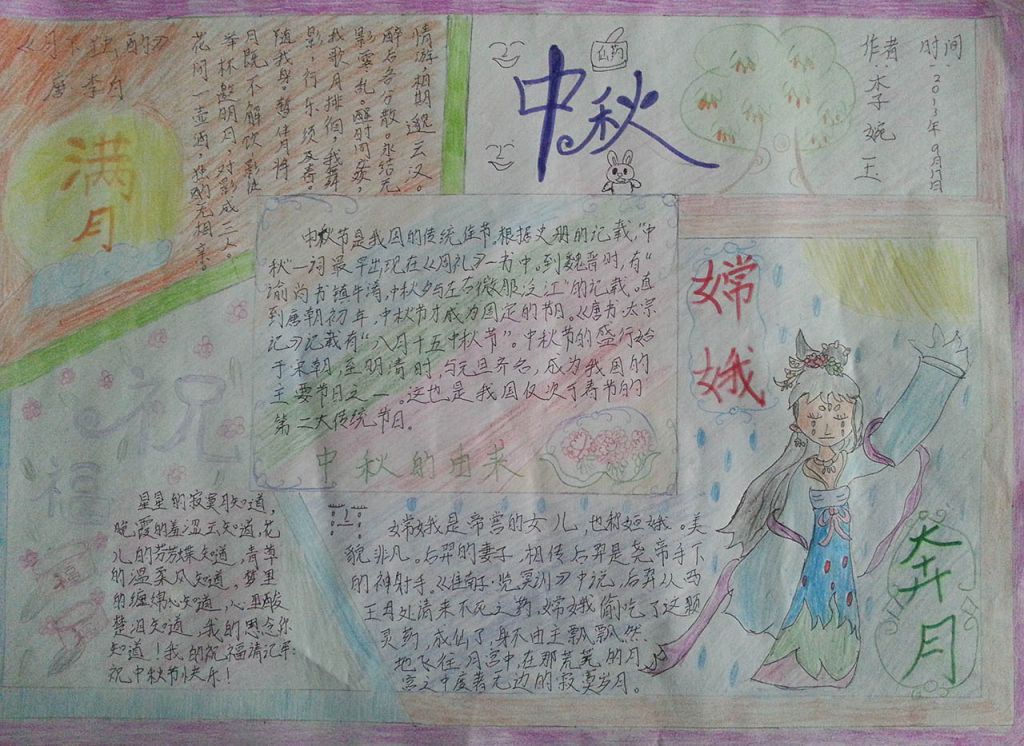 《月下独酌》
唐 李白
满
月
花间一壶酒，独酌无相亲。
举杯邀明月，对影成三人。
月既不解饮，影徒
随我身。暂伴月将
影，行乐须及春。
我歌月徘徊，我舞
影零乱。醒时同交欢，
醉后各分散。永结无
情游，相期邈云汉。
中秋
作者：木子婉玉
时间：2013年9月17日
中秋节是我国的传统佳节。根据史册的记载，“中
秋”一词最早出现在《周礼》一书中。到魏晋时，有“
谕尚书镇牛渚，中秋夕与左右微服泛江”的记载。直
到唐朝初年，中秋节才成为固定的节日。《唐书·太宗
记》记载有“八月十五中秋节”。中秋节的盛行始
于宋朝，至明清时，与元旦齐名，成为我国的
主要节日之一。这也是我国仅次于春节的
第二大传统节日。
中秋的由来
嫦
娥
奔
月
祝
福
福
星星的寂寞月知道，
晚霞的羞涩云知道，花
儿的芬芳蝶知道，青草
的温柔风知道，梦里
的缠绵心知道，心里酸
楚泪知道，我的思念你
知道！我的祝福请记牢：
祝中秋节快乐！
嫦娥是帝喾的女儿，也称姮娥。美
貌非凡。后羿的妻子，相传后羿是尧帝手下
的神射手。《淮南子·览冥训》中说，后羿从西
王母处请来不死之药，嫦娥偷吃了这颗
灵药，成仙了，身不由主飘飘然
地飞往月宫中，在那荒芜的月
宫之中度着无边的寂寞岁月。